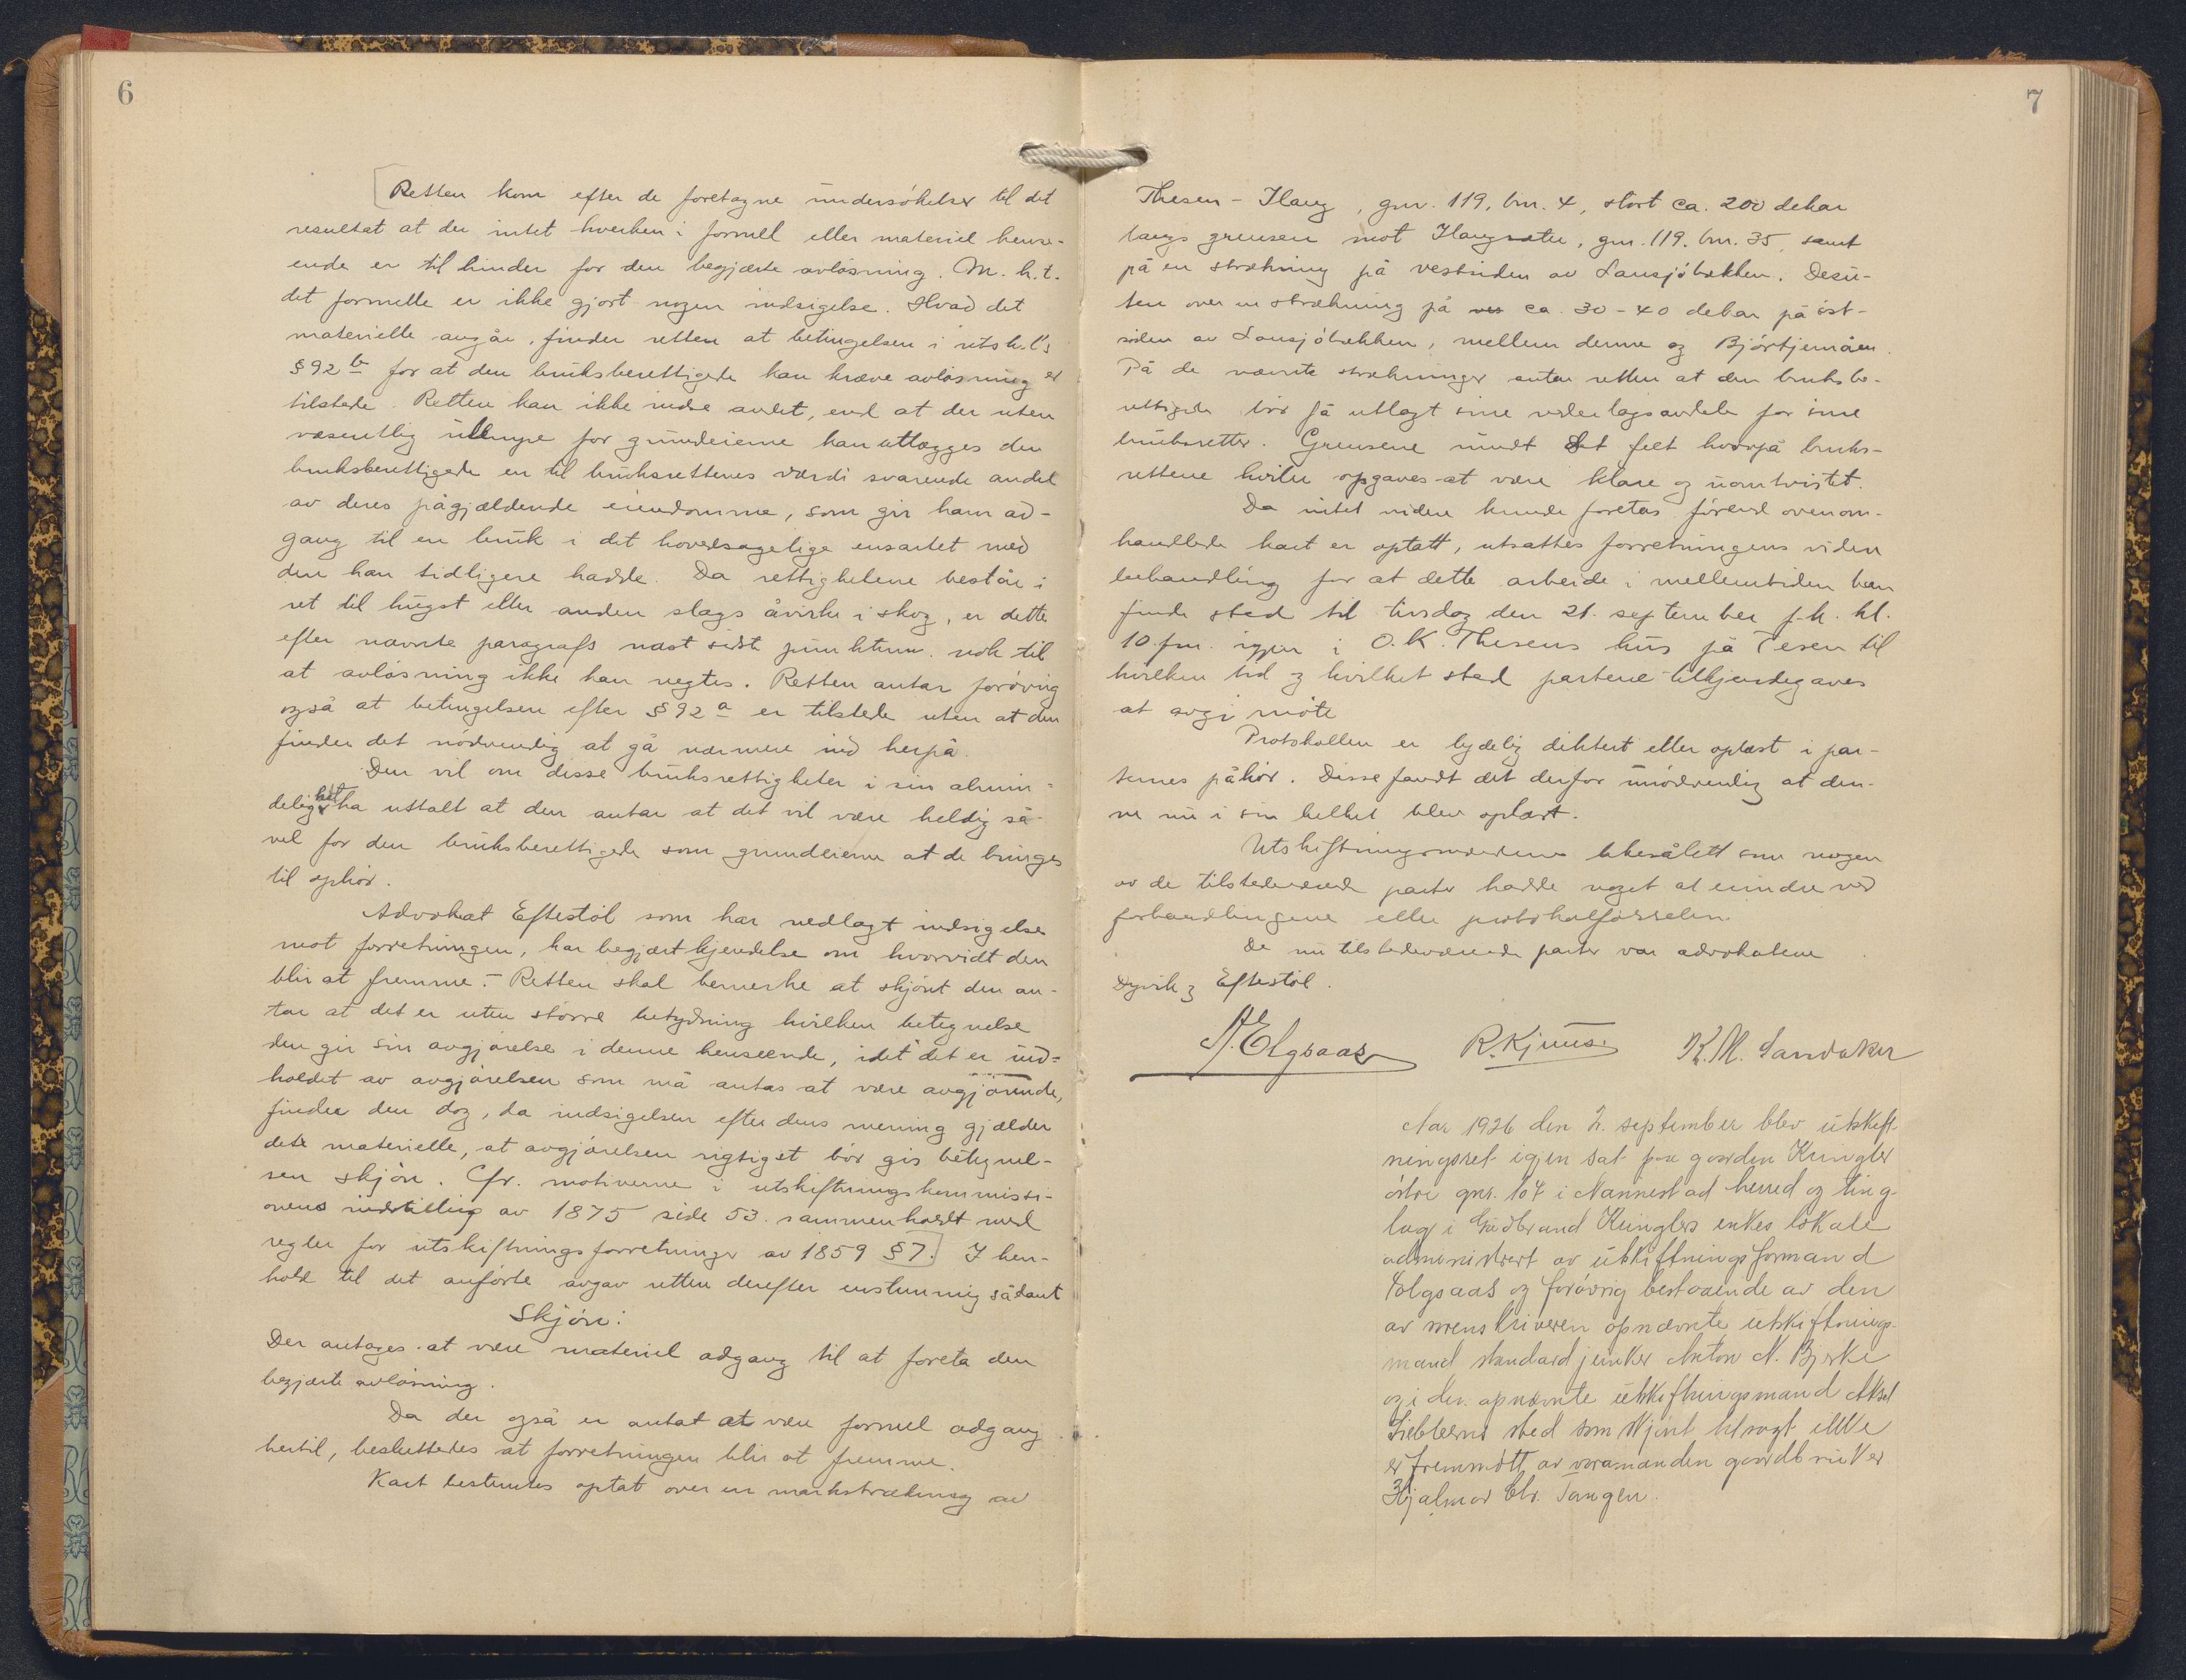 6
[Retten kom efter de foretagne undersökelser til det
resultat at der intet hverken i formell eller materiel hense-
ende er til hinder for den begjærte avlösning. M. h. t.
det formelle er ikke gjort nogen indsigelse. Hvad det
materielle angår, finder retten at betingelsen i utsk.l's
§ 92 b for at den bruksberettigede kan kræve avlösning er
tilstede. Retten kan ikke rettere andet, end at der uten
væsentlig ulempe for grundeierne kan utlægges den
bruksberettigede en til bruksrettenes værdi svarende andel
av deres pågjældende eiendomme, som gir ham ad-
gang til en bruk i det hovedsagelige ensartet med
den han tidligere hadde. Da rettighetene består i
ret til hugst eller anden slags åvirke i skog, er dette
efter nævnte paragrafs næst sidste punktum nok til
at avlösning ikke kan negtes. Retten antar forövrig
også at betingelsen efter § 92 a er tilstede uten at den
finder det nödvendig at gå nærmere ind herpå.
Den vil om disse bruksrettigheter i sin almin-
delighet ha uttalt at den antar at det vil være heldig så-
vel for den bruksberettigede som grundeierne at de bringes
til ophör.
Advokat Eftestöl som har nedlagt indsigelse
mot forretningen, har begjært kjendelse om hvorvidt den
blir at fremme. - Retten skal bemerke at skjönt den an-
tar at det er uten större betydning hvilken betegnelse
den gir sin avgjörelse i denne henseende, idet det er ind-
holdet av avgjörelsen som må antas at være avgjörende,
finder den dog, da indsigelsen efter dens mening gjælder
det materielle, at avgjörelsen rigtigst bör gis betegnel-
sen skjön. Cfr. motiverne i utskiftningskommissi-
onens indstilling av 1875 side 53 sammenholdt med
regler for utskiftningsforretninger av 1859 § 7.] I hen-
hold til det anförte avgav retten derefter enstemmig sådant
Skjön:
Der antages at være materiel adgang til at foreta den
begjærte avlösning.
Da der også er antat at være formel adgang
hertil, besluttedes at forretningen blir at fremme.
Kart bestemtes optat over en markstrækning av
7
Thesen - Haug, gnr. 119, bnr. 4, stort ca. 200 dekar
langs grensen mot Haugsætre, gnr. 119. bnr. 35, samt
på en strækning på vestsiden av Lansjöbækken. Desu-
ten over en strækning på ves ca. 30 - 40 dekar på öst-
siden av Lansjöbækken, mellem denne og Björtjernåen.
På de nævnte strækninger antar retten at den bruksbe-
rettigede bör få utlagt sine vederlagsandele for sine
bruksretter. Grensene rundt det felt hvorpå bruks-
rettene hviler opgaves at være klare og uomtvistet.
Da intet videre kunde foretas förend ovenom-
handlede kart er optatt, utsattes forretningens viden
behandling for at dette arbeide i mellemtiden kan
finde sted til tirsdag den 21. september f. k. kl.
10 fm. igjen i O. K. Thesens hus på Tesen til
hvilken tid og hvilket sted partene tilkjendegaves
at avgi möte
Protokollen er lydelig diktert eller oplæst i par-
ternes påhör. Disse fandt det derfor unödvendig at den-
ne nu i sin helhet blev oplæst.
Utskiftningsmændene likesålitt som nogen
av de tilstedeværende parter hadde noget at erindre ved
forhandlingene eller protokolförselen.
De nu tilstedeværende parter var advokatene
Dyvik og Eftestöl.
A. Elgsaas R. Kjuus. K. M. Sandaker
Aar 1926 den 2. september blev utskift-
ningsret igjen sat paa gaarden Kringler
östre gnr. 107 i Nannestad herred og ting-
lag i Gudbrand Kringlers enkes lokale
administrert av utskiftningsformand
Elgsaas og forövrig bestaaende av den
av sorenskriveren opnævnte utskiftnings-
mand standardjunker Anton N. Bjerke
og i den opnævnte utskiftningsmand Aksel
sted som skjönt tilsagt ikke
er fremmött av varamanden gaardbruker
Hjalmar Chr. Tangen.